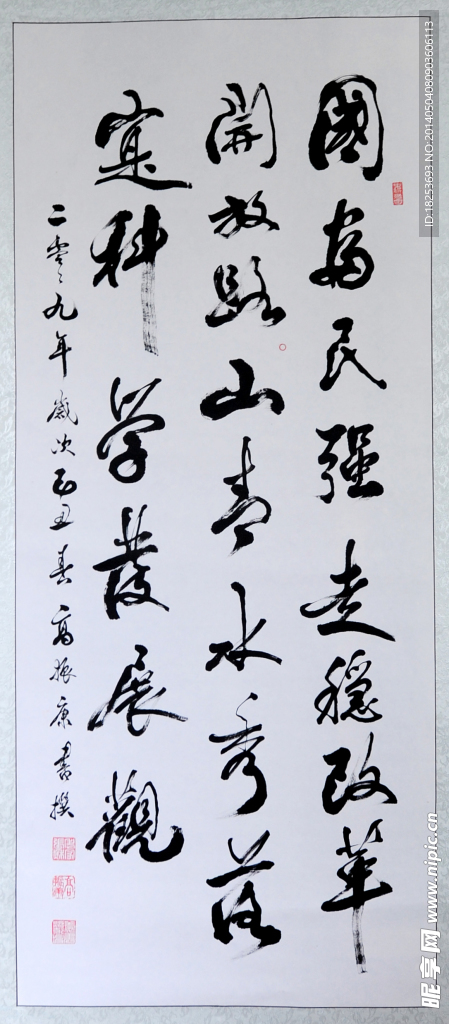 國富民强走穩改革
開放路山青水秀落
寔科學發展觀
二零零九年歲次己丑春高振康書撰
ID:18253693 NO:20140504080903606113
昵享网 www.nipic.cn